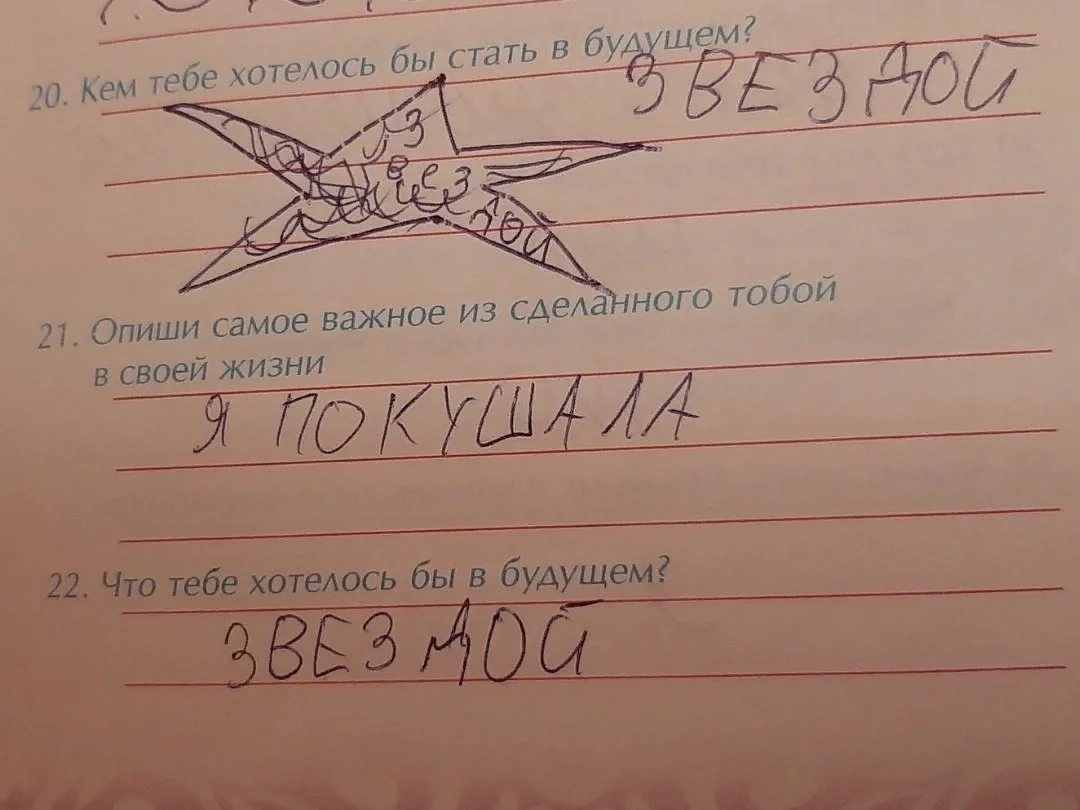 20. Кем тебе хотелось бы стать в будущем?
ЗВЕЗДОЙ
з
вез
дой
21. Опиши самое важное из сделанного тобой
в своей жизни
Я ПОКУШАЛА
22. Что тебе хотелось бы в будущем?
ЗВЕЗДОЙ